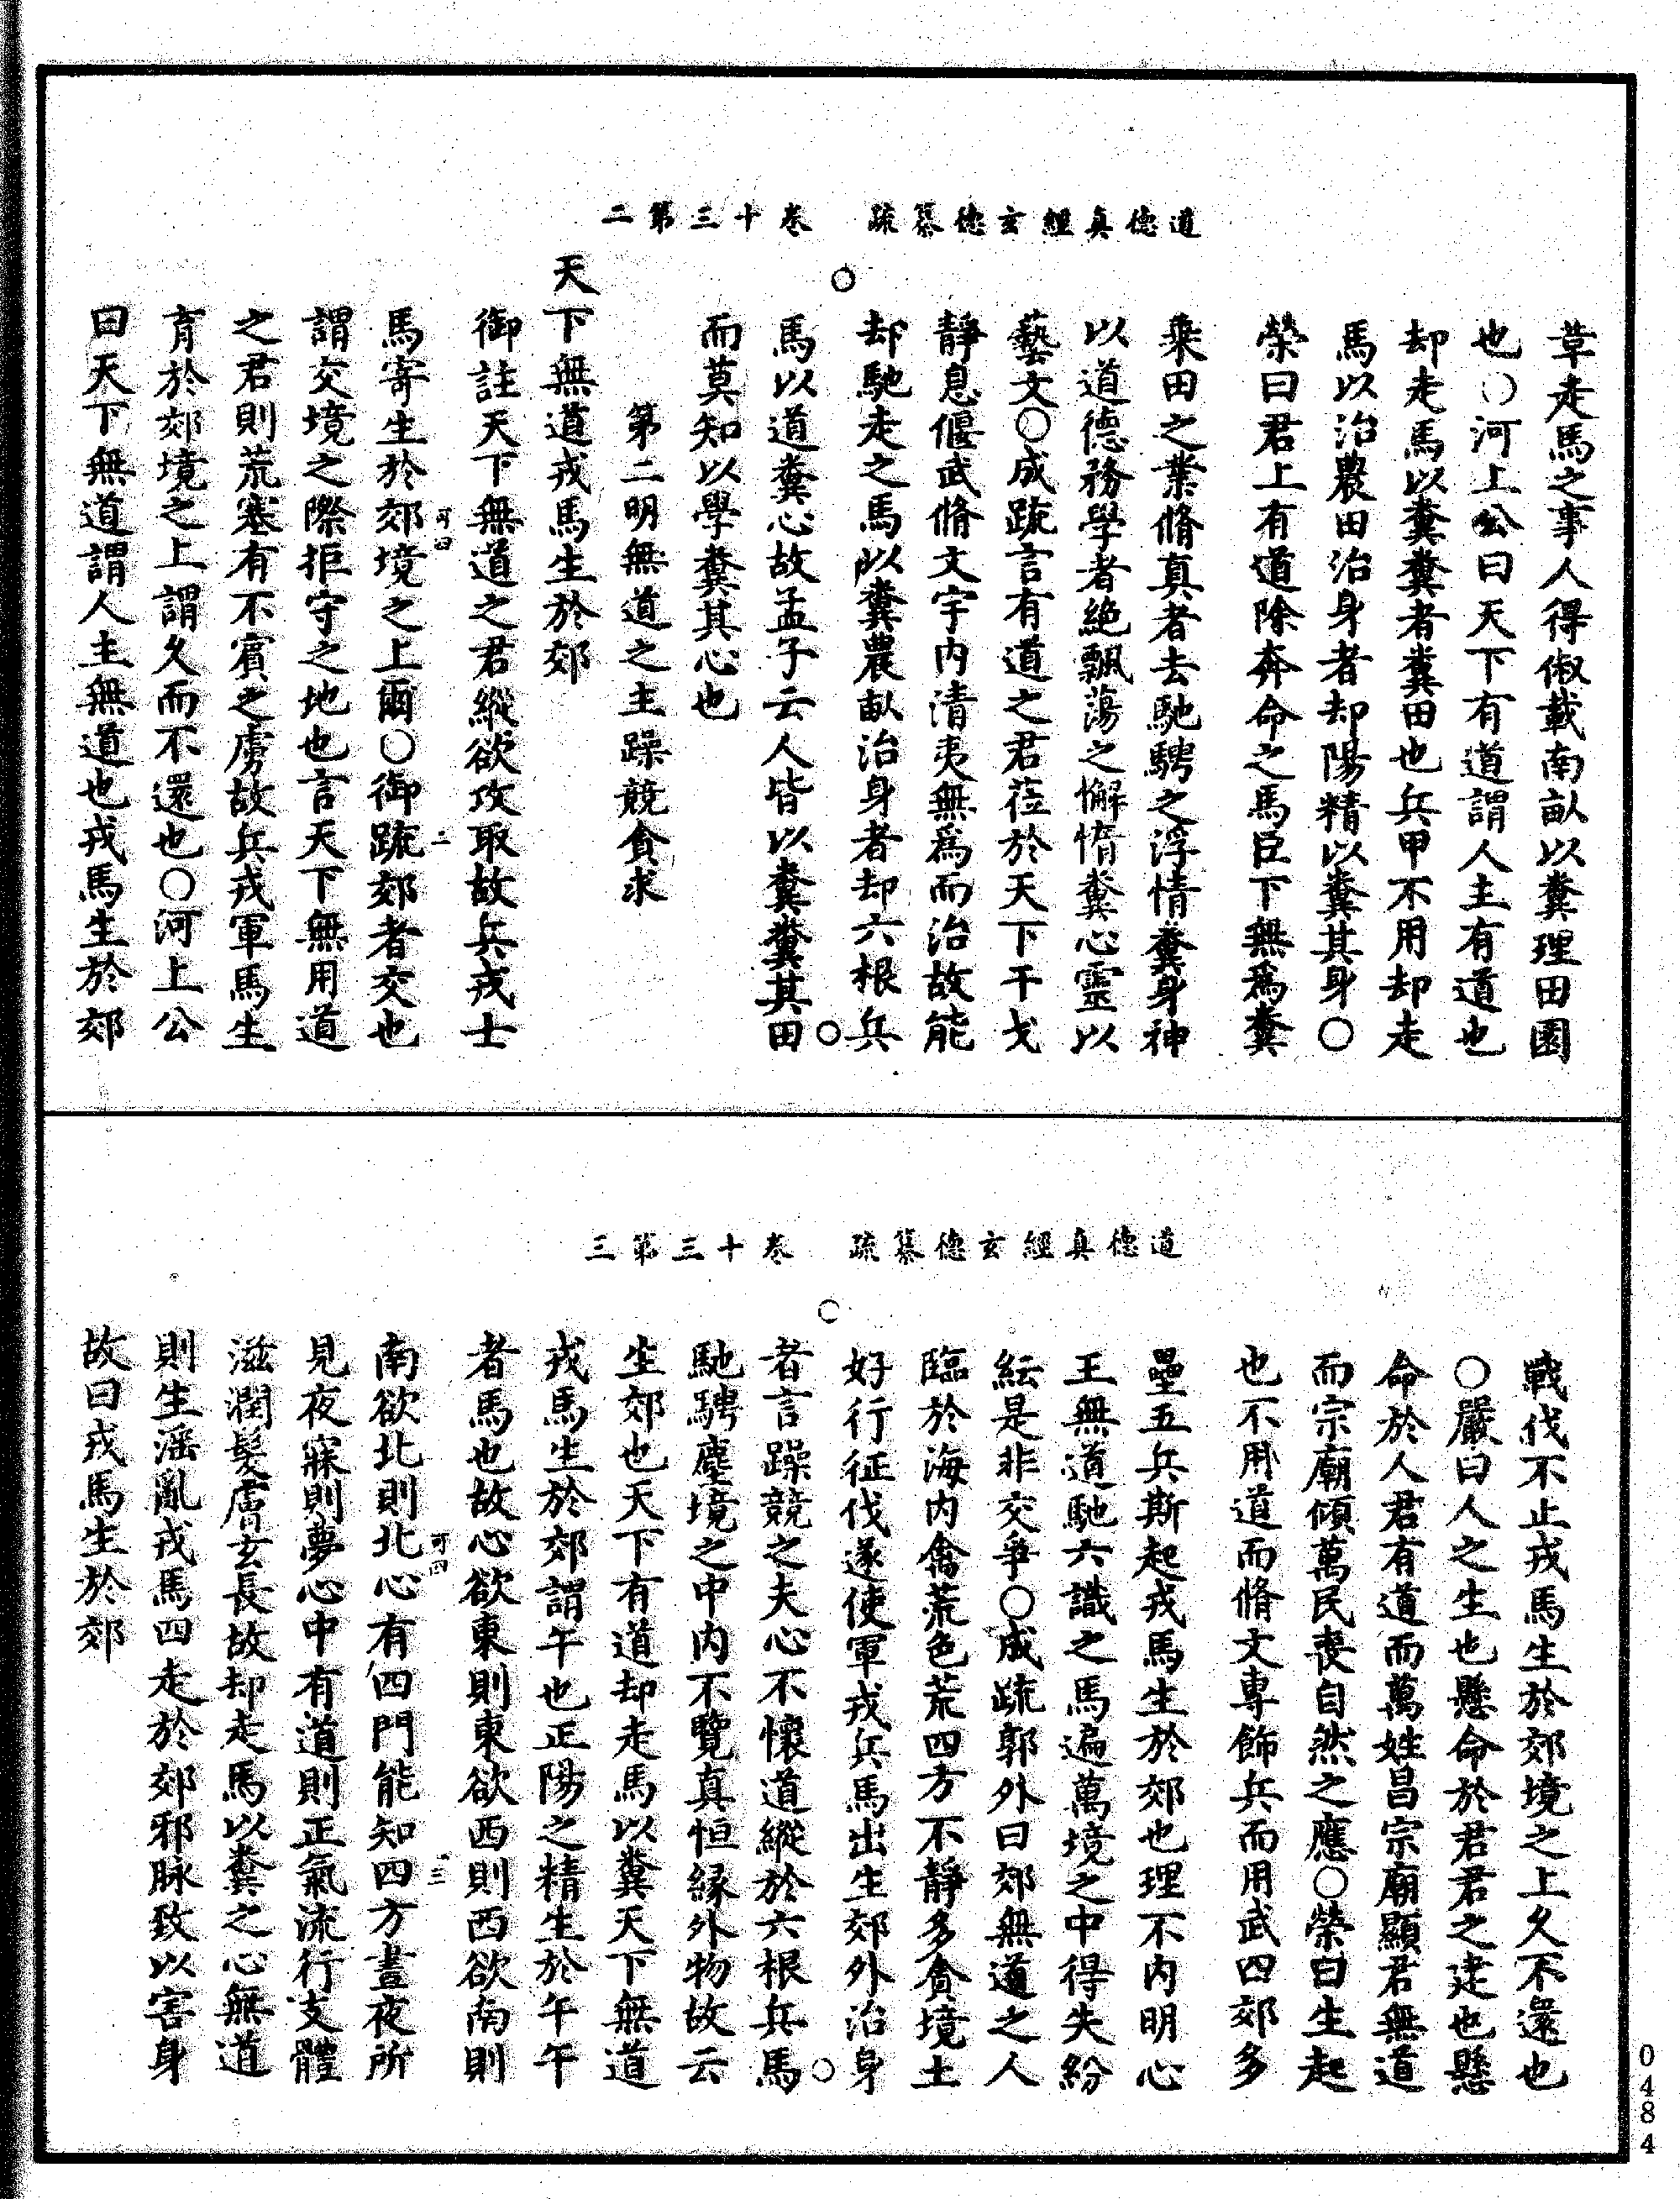 道德真經玄德纂疏　卷十三第二
革走馬之事人得俶載南畝以糞理田園
也○河上公曰天下有道謂人主有道也
却走馬以糞糞者糞田也兵甲不用却走
馬以治農田治身者却陽精以糞其身○
榮曰君上有道除奔命之馬臣下無爲糞
乗田之業脩真者去馳騁之浮情糞身神
以道德務學者絶飄蕩之懈惰糞心靈以
藝文○成疏言有道之君莅於天下干戈
靜息偃武脩文宇内清夷無爲而治故能
却馳走之馬以糞農畝治身者却六根兵
馬以道糞心故孟子云人皆以糞糞其田
而莫知以學糞其心也
第二明無道之主躁競貪求
天下無道戎馬生於郊
御註天下無道之君縱欲攻取故兵戎士
馬寄生於郊境之上爾○御疏郊者交也
可四
二
謂交境之際拒守之地也言天下無用道
之君則荒塞有不賓之虜故兵戎軍馬生
育於郊境之上謂久而不還也○河上公
曰天下無道謂人主無道也戎馬生於郊
道德真經玄德纂疏　卷十三第三
戰伐不止戎馬生於郊境之上久不還也
○嚴曰人之生也懸命於君君之建也懸
命於人君有道而萬姓昌宗廟顯君無道
而宗廟傾萬民喪自然之應○榮曰生起
也不用道而脩文專飾兵而用武四郊多
壘五兵斯起戎馬生於郊也理不内明心
王無道馳六識之馬遍萬境之中得失紛
紜是非交爭○成疏郭外曰郊無道之人
臨於海内禽荒色荒四方不靜多貪境土
好行征伐遂使軍戎兵馬出生郊外治身
者言躁競之夫心不懷道縱於六根兵馬
馳騁塵境之中内不覽真恒縁外物故云
生郊也天下有道却走馬以糞天下無道
戎馬生於郊謂午也正陽之精生於午午
者馬也故心欲東則東欲西則西欲南則
南欲北則北心有四門能知四方晝夜所
可四
三
見夜寐則夢心中有道則正氣流行支體
滋潤髮膚玄長故却走馬以糞之心無道
則生滛亂戎馬四走於郊邪脉致以害身
故曰戎馬生於郊
0484